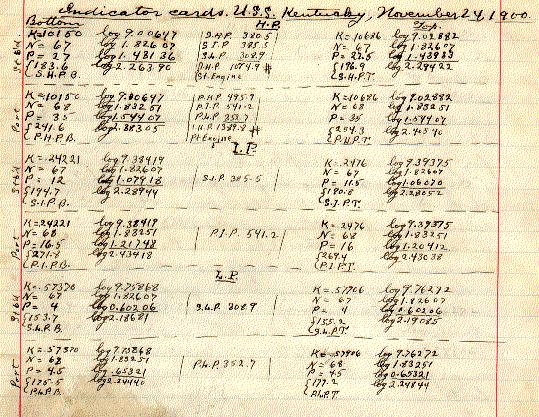 Indicator cards. U.S.S. Kentucky, November 24, 1900.
Bottom H.P. Top.
Stbd
K=10150 log 9.00647 S.H.P. 380.5 K=10686 log 9.02882
N = 67 log 1.82607 S.I.P. 385.5 N = 67 log 1.82607
P = 27 log 1.43136 S.L.P. 308.9 P = 27.5 log 1.43933
{183.6 log 2.26390 I.H.P. 1074.9 {196.9 log 2.29422
S.H.P.B. St. Engine S.H.P.T.
Port
K=10150 log 9.00647 P.H.P. 495.9 K=10686 log 9.02882
N = 68 log 1.83251 P.I.P. 541.2 N = 68 log 1.83251
P = 35 log 1.54407 P.L.P. 352.7 P = 35 log 1.54407
{241.6 log 2.38305 I.H.P. 1389.8 {254.3 log 2.40540
P.H.P.B. Pt Engine P.H.P.T.
I.P.
Stbd
K=.24221 log 9.38419 K=.2476 log 9.39375
N = 67 log 1.82607 N = 67 log 1.82607
P = 12 log 1.07918 S.I.P. 385.5 P = 11.5 log 1.06070
{194.7 log 2.28944 {190.8 log 2.28052
S.I.P.B. S.I.P.T.
Port
K=24221 log 9.38419 K=2476 log 9.39375
N = 68 log 1.83251 P.I.P. 541.2 N = 68 log 1.83251
P = 16.5 log 1.21748 P = 16 log 1.20412
{271.8 log 2.43418 {269.4 log 2.43038
P.I.P.B. P.I.P.T.
L.P.
Stbd
K=.57370 log 9.75868 K=.57906 log 9.76272
N = 67 log 1.82607 N = 67 log 1.82607
P = 4 log 0.60206 S.L.P. 308.9 P = 4 log 0.60206
{153.7 log 2.18681 {155.2 log 2.19085
S.L.P.B. S.L.P.T.
Port
K=.57370 log 9.75868 K=.57906 log 9.76272
N = 68 log 1.83251 P.L.P. 352.7 N = 68 log 1.83251
P = 4.5 log .65321 P = 4.5 log 0.65321
{175.5 log 2.24440 {177.2 log 2.24844
P.L.P.B. P.L.P.T.